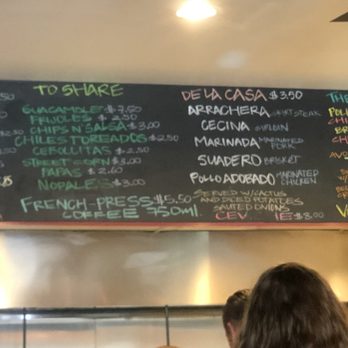 TO SHARE
GUACAMOLE $7.50
FRIJOLES $2.50
CHIPS N' SALSA $3.00
CHILES TOREADOS $2.50
CEBOLLITAS $2.50
STREET CORN $3.00
PAPAS $2.60
NOPALES $3.00
FRENCH-PRESS $5.50
COFFEE 750ml.
DE LA CASA $3.50
ARRACHERA SKIRT STEAK
CECINA SIRLOIN
MARINADA MARINATED PORK
SUADERO BRISKET
POLLO ADOBADO MARINATED CHICKEN
SERVED W/CACTUS
AND DICED POTATOES
SAUTED ONIONS
CEV IE $8.00
THE